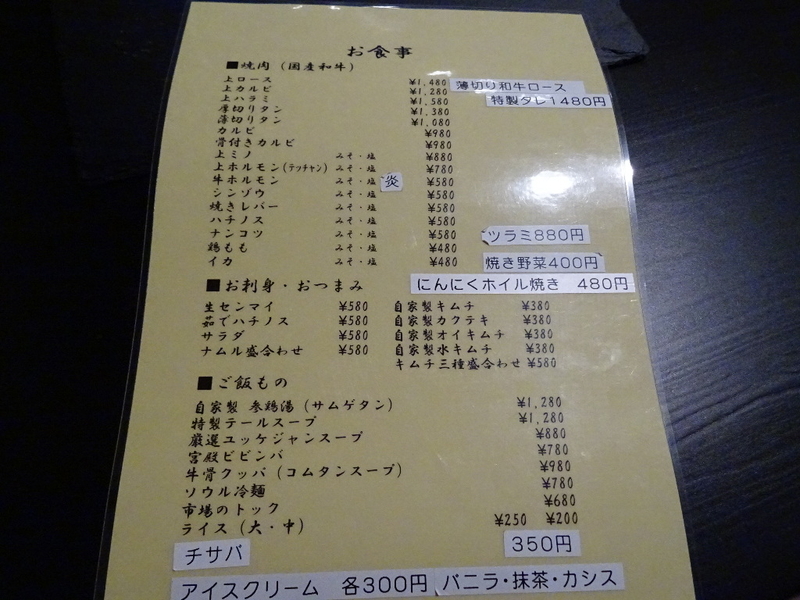 お食事
■焼肉（国産和牛）
上ロース ¥1,480 薄切り和牛ロース
上カルビ ¥1,280 特製タレ1480円
上ハラミ ¥1,580
厚切りタン ¥1,380
薄切りタン ¥1,080
カルビ ¥980
骨付きカルビ ¥980
上ミノ みそ・塩 ¥880
上ホルモン(テッチャン) みそ・塩 ¥780
牛ホルモン みそ・塩 炎 ¥580
シンゾウ みそ・塩 ¥580
焼きレバー みそ・塩 ¥580
ハチノス みそ・塩 ¥580
ナンコツ みそ・塩 ¥580 ツラミ880円
鶏もも みそ・塩 ¥480
イカ みそ・塩 ¥480 焼き野菜400円
■お刺身・おつまみ にんにくホイル焼き 480円
生センマイ ¥580 自家製キムチ ¥380
茹でハチノス ¥580 自家製カクテキ ¥380
サラダ ¥580 自家製オイキムチ ¥380
ナムル盛合わせ ¥580 自家製水キムチ ¥380
キムチ三種盛合わせ ¥580
■ご飯もの
自家製 参鶏湯（サムゲタン） ¥1,280
特製テールスープ ¥1,280
厳選ユッケジャンスープ ¥880
宮殿ビビンバ ¥780
牛骨クッパ（コムタンスープ） ¥980
ソウル冷麺 ¥780
市場のトック ¥680
ライス（大・中） ¥250 ¥200
チサバ 350円
アイスクリーム 各300円 バニラ・抹茶・カシス